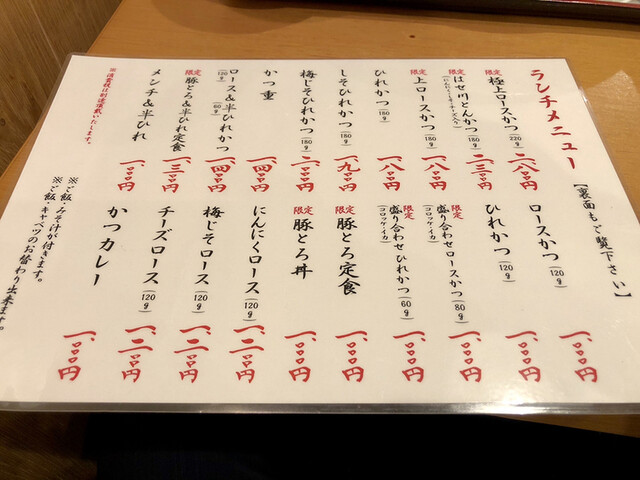 ランチメニュー
【裏面もご覧下さい】
限定 極上ロースかつ(220g) 二、八〇〇円
限定 はせ川とんかつ(180g) 二、三〇〇円
限定 上ロースかつ(180g) 一、八〇〇円
ひれかつ(180g) 一、八〇〇円
しそひれかつ(180g) 一、九〇〇円
梅じそひれかつ(180g) 二、〇〇〇円
かつ重 一、四〇〇円
ロース&半ひれかつ(120g)(60g) 一、四〇〇円
限定 豚とろ&半ひれ定食 一、三〇〇円
メンチ&半ひれ 一、〇〇〇円
※消費税は別途頂戴いたします。
ロースかつ(120g) 一、〇〇〇円
ひれかつ(120g) 一、〇〇〇円
限定 盛り合わせロースかつ(80g) 一、〇〇〇円
(コロッケ・イカ)
限定 盛り合わせひれかつ(60g) 一、〇〇〇円
(コロッケ・イカ)
限定 豚とろ定食 一、〇〇〇円
限定 豚とろ丼 一、〇〇〇円
にんにくロース(120g) 一、二〇〇円
梅じそロース(120g) 一、二〇〇円
チーズロース(120g) 一、二〇〇円
かつカレー 一、〇〇〇円
※ご飯・みそ汁が付きます。
※ご飯・キャベツのお替わり出来ます。